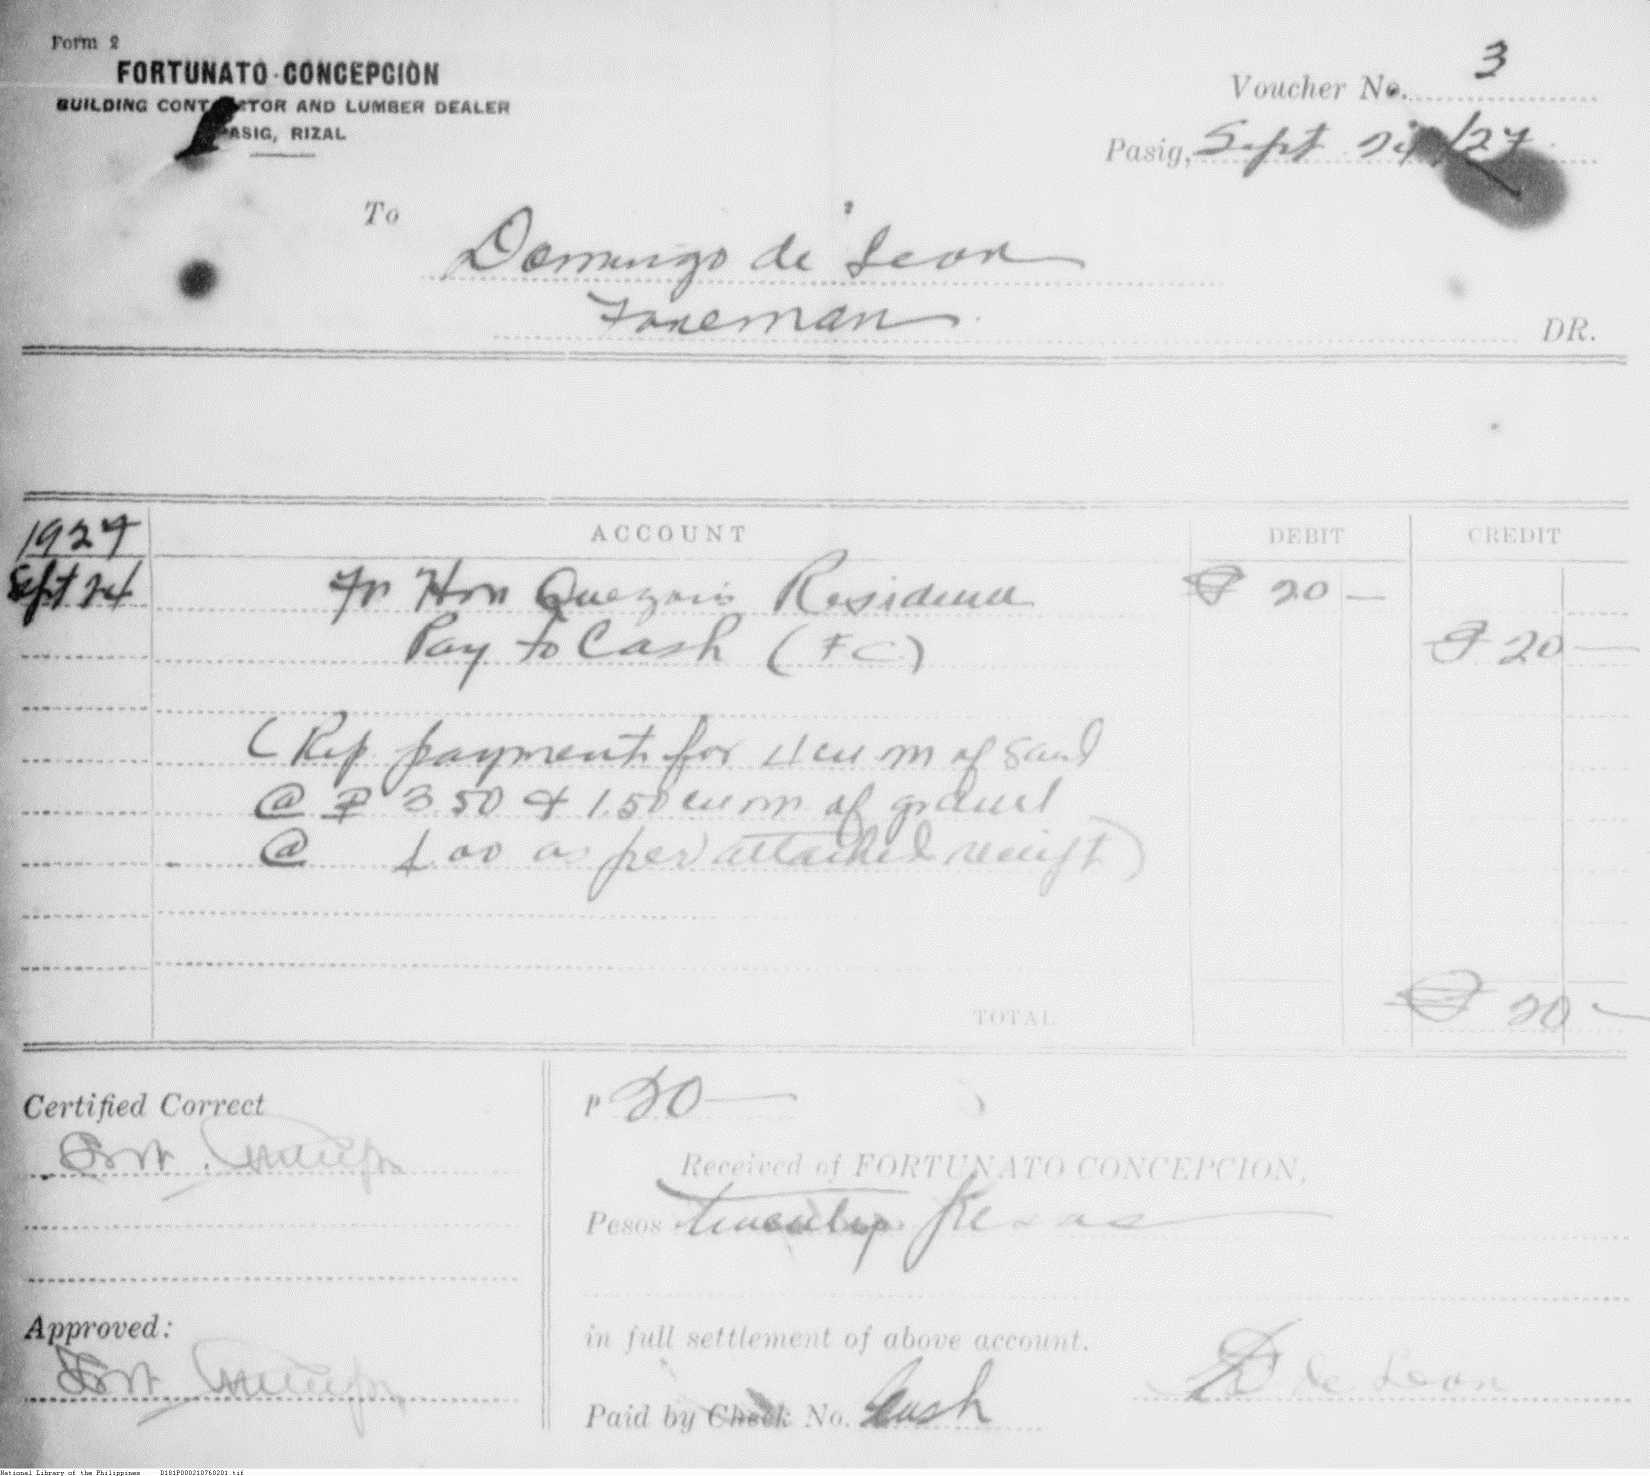 Form 2
FORTUNATO CONCEPCION
BUILDING CONTRACTOR AND LUMBER DEALER
PASIG, RIZAL
Voucher No. 3
Pasig, Sept 24/27
To
Domingo de Leon
Foreman
DR.
1927 ACCOUNT DEBIT CREDIT
Sept 24 Fr Hon Quezon's Residence ₱ 20 —
Pay to Cash (FC) ₱ 20 —
(Rep. payment for 4 cu m of Sand
@ ₱ 3.50 & 1.50 cu m of gravel
@ 4.00 as per attached receipt)
TOTAL ₱ 20 —
Certified Correct
Approved:
P 20 —
Received of FORTUNATO CONCEPCION,
Pesos twenty Pesos
in full settlement of above account.
Paid by Check No. Cash
D de Leon
National Library of the Philippines D181P000210760201.tif